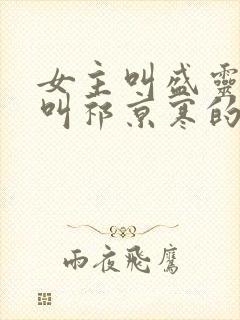 女主叫盛靈
叫祁京寒的
雨夜飛鷹